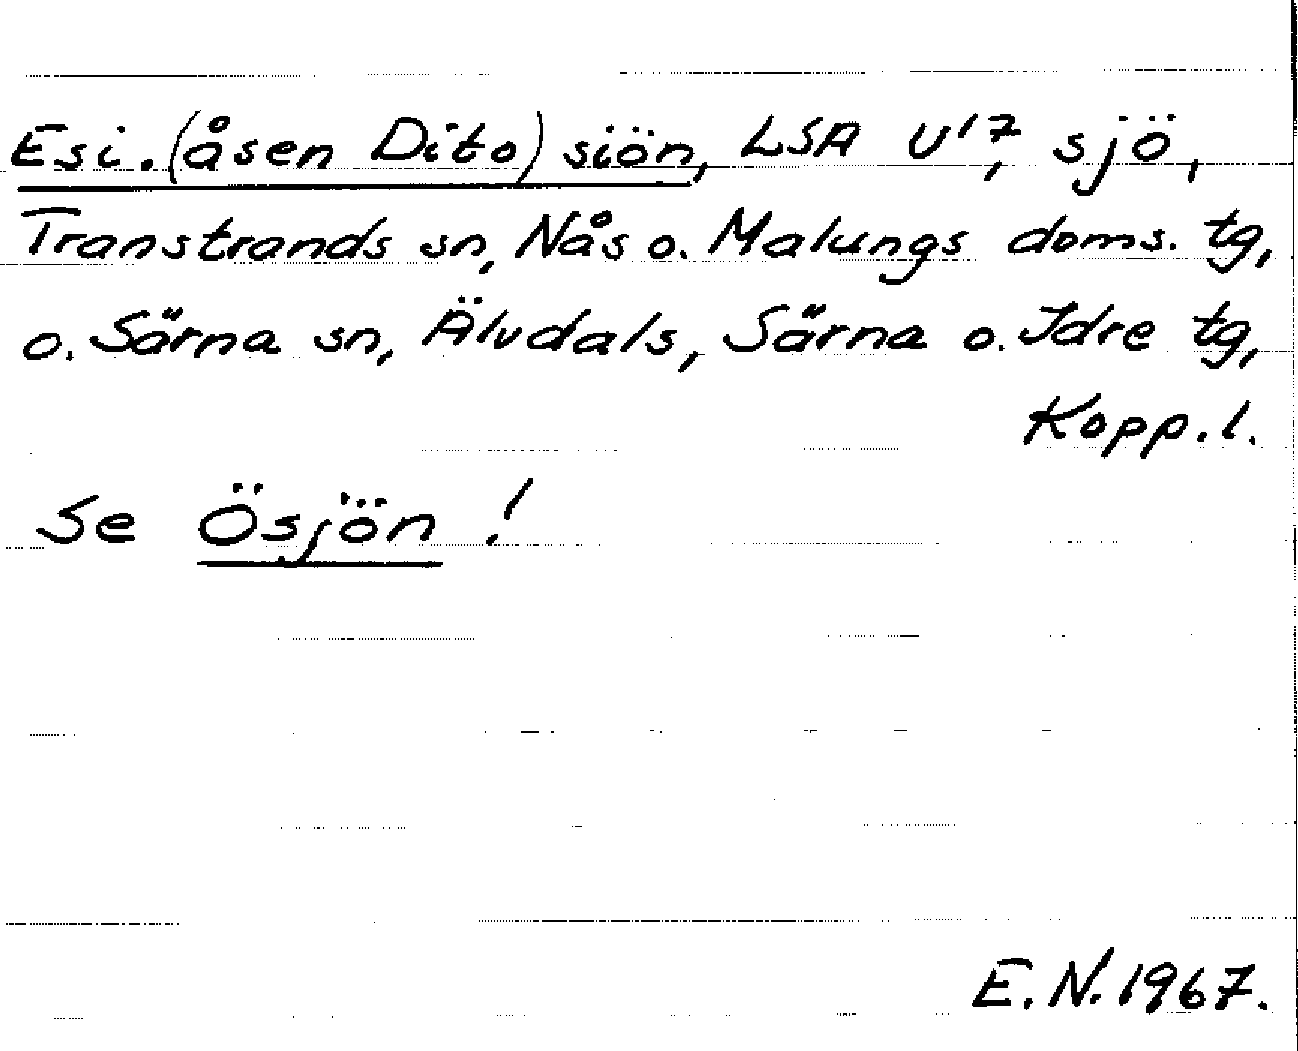 Esi. (åsen Dito) siön, LSA U'7, sjö,
Transtrands sn, Nås o. Malungs doms. tg,
o. Särna sn, Älvdals, Särna o. Idre tg,
Kopp. l.
Se Ösjön!
E. N. 1967.